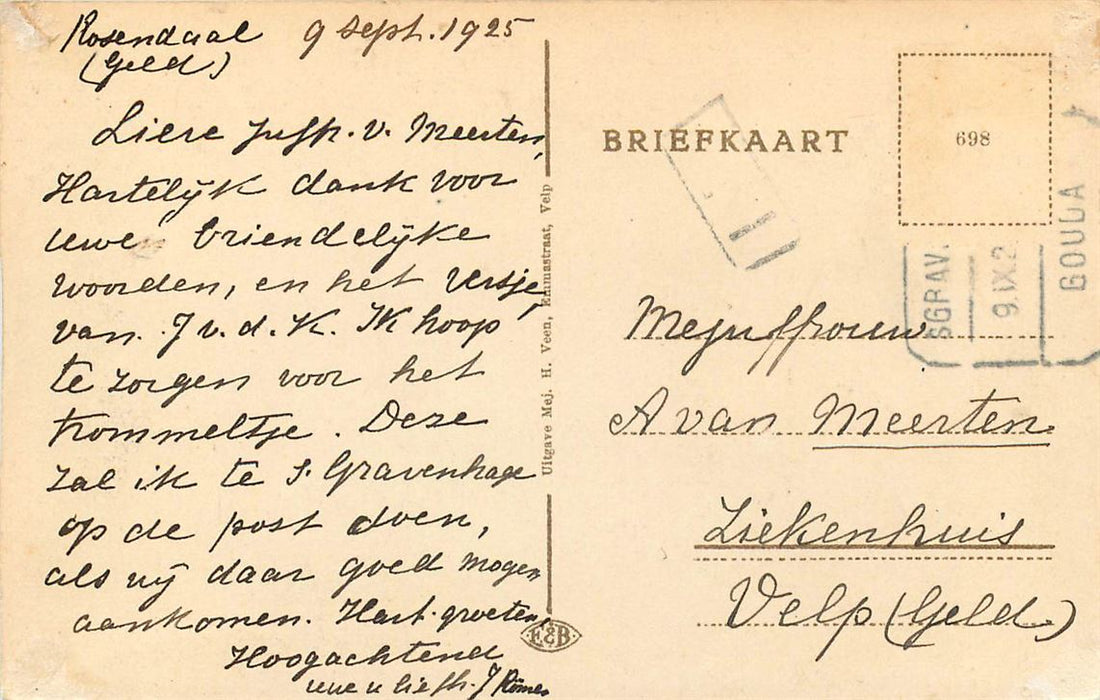 Rosendaal 9 Sept. 1925
(Geld)
Lieve Juffr. v. Meerten,
Hartelijk dank voor
uwe vriendelijke
woorden, en het versje,
van J v. d. K. Ik hoop
te zorgen voor het
trommeltje. Deze
zal ik te s. Gravenhage
op de post doen,
als wij daar goed mogen
aankomen. Hart. groeten,
Hoogachtend
uwe u liefh. J Römer
Uitgave Mej. H. Veen, Emmastraat, Velp
E&B
BRIEFKAART
698
SGRAV.
9.IX.2
GOUDA
Mejuffrouw
A van Meerten
Ziekenhuis
Velp (Geld.)